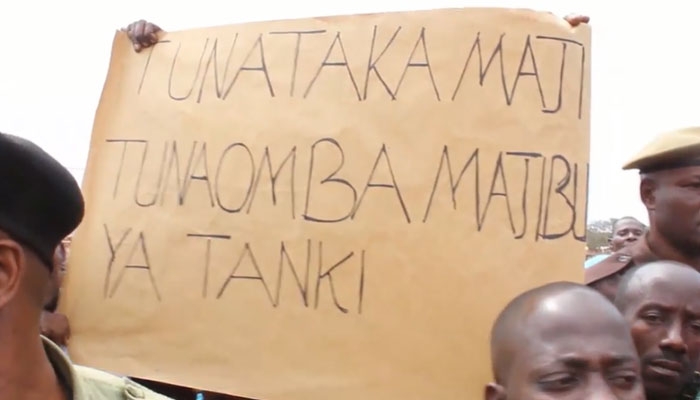 TUNATAKA MAJI
TUNAOMBA MAJIBU
YA TANKI